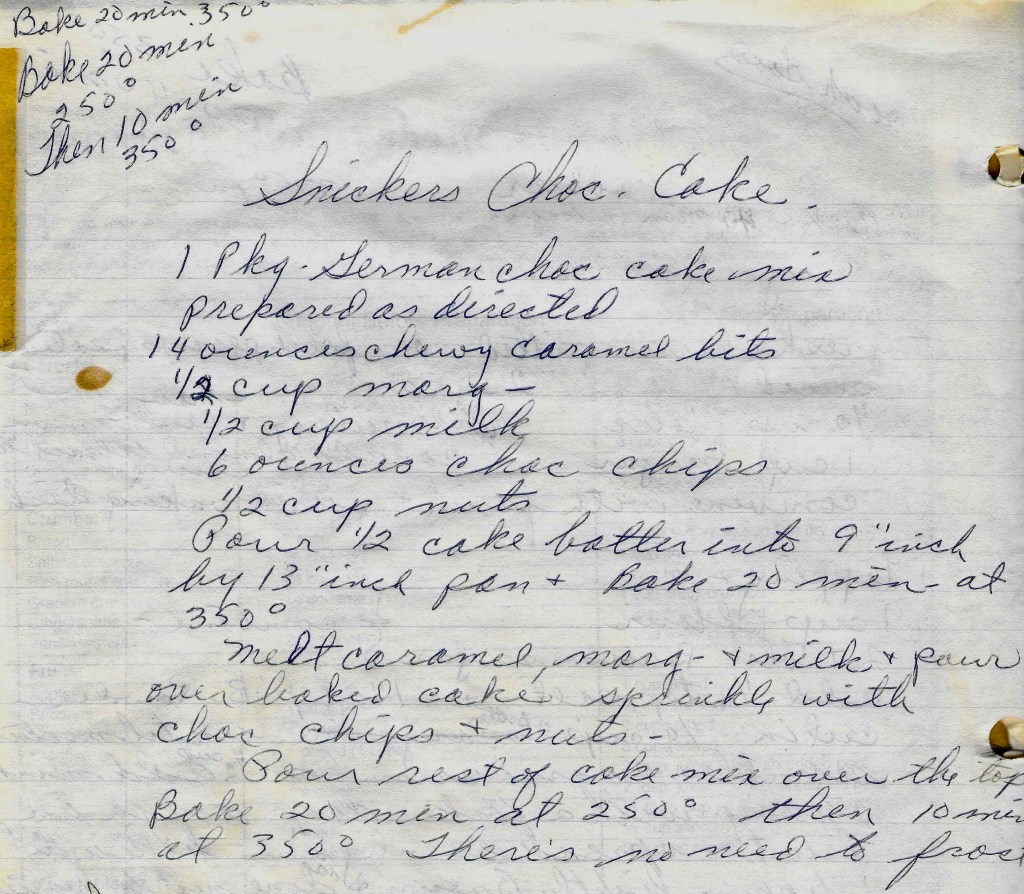 Bake 20 min. 350°
Bake 20 min
250°
Then 10 min
350°
Snickers Choc. Cake.
1 Pkg - German choc cake mix
prepared as directed
14 ounces chewy caramel bits
1/2 cup marg -
1/2 cup milk
6 ounces choc chips
1/2 cup nuts
Pour 1/2 cake batter into 9" inch
by 13" inch pan + Bake 20 min - at
350°
Melt caramel, marg - + milk + pour
over baked cake, sprinkle with
choc chips + nuts -
Pour rest of cake mix over the top
Bake 20 min at 250° then 10 min
at 350° There's no need to frost